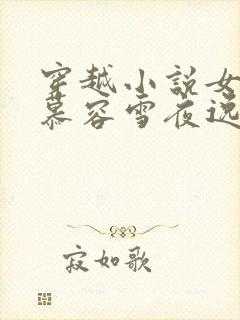 穿越小说女
慕容雪夜逸
寂如歌